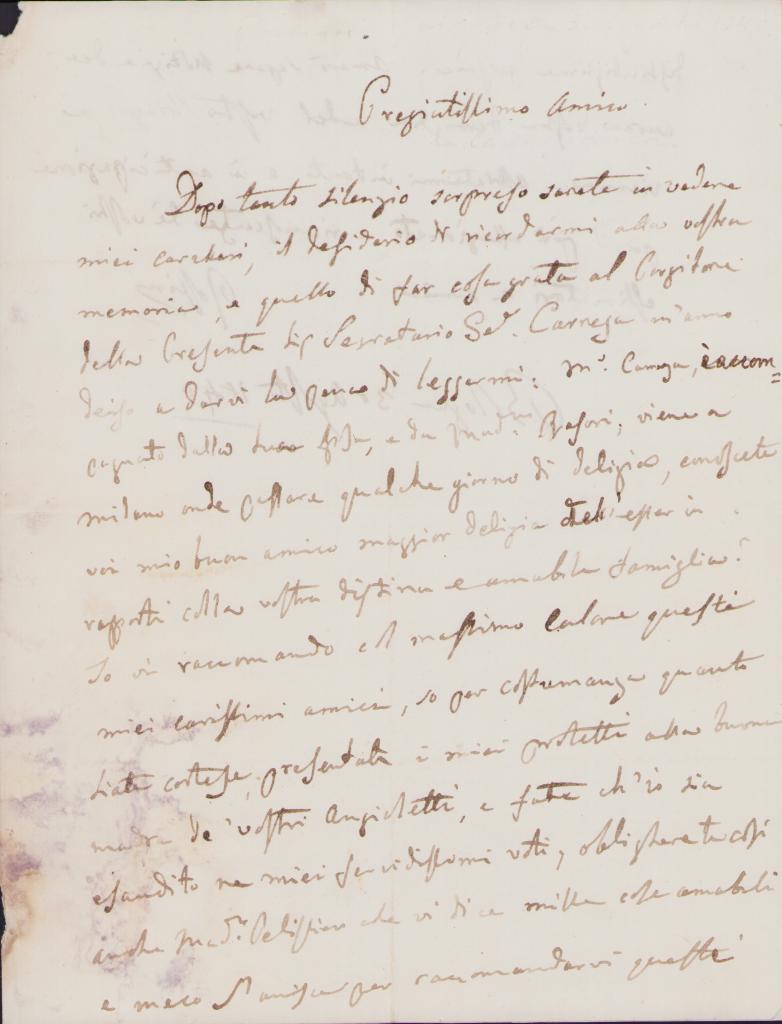 Pregiatissimo Amico
Dopo tanto silenzio sorpreso sarete in vedere
miei caratteri, il desiderio di ricordarmi alla vostra
memoria, e quello di far cosa grata al Porgitore
della Presente Sig Segretario Carrega m'anno
deciso a darvi la pena di leggermi: Mr. Carrega, è accom=
pagnato dalla sua e da Mad.
milano onde passare qualche giorno di delizia, conoscete
voi mio buon amico maggior delizia dell'esser in
rapporti colla vostra distinta e amabile famiglia?
Io vi raccomando col massimo calore questi
miei carissimi amici, so per costumanza quanto
siate cortese, presentate i miei protetti alla buona
madre de' vostri Angioletti, e fate ch'io sia
esaudito ne miei fervidissimi voti, obbligherete così
anche Mad. Pelissier che vi dice mille cose amabili
e meco s'unisce per raccomandarvi questi